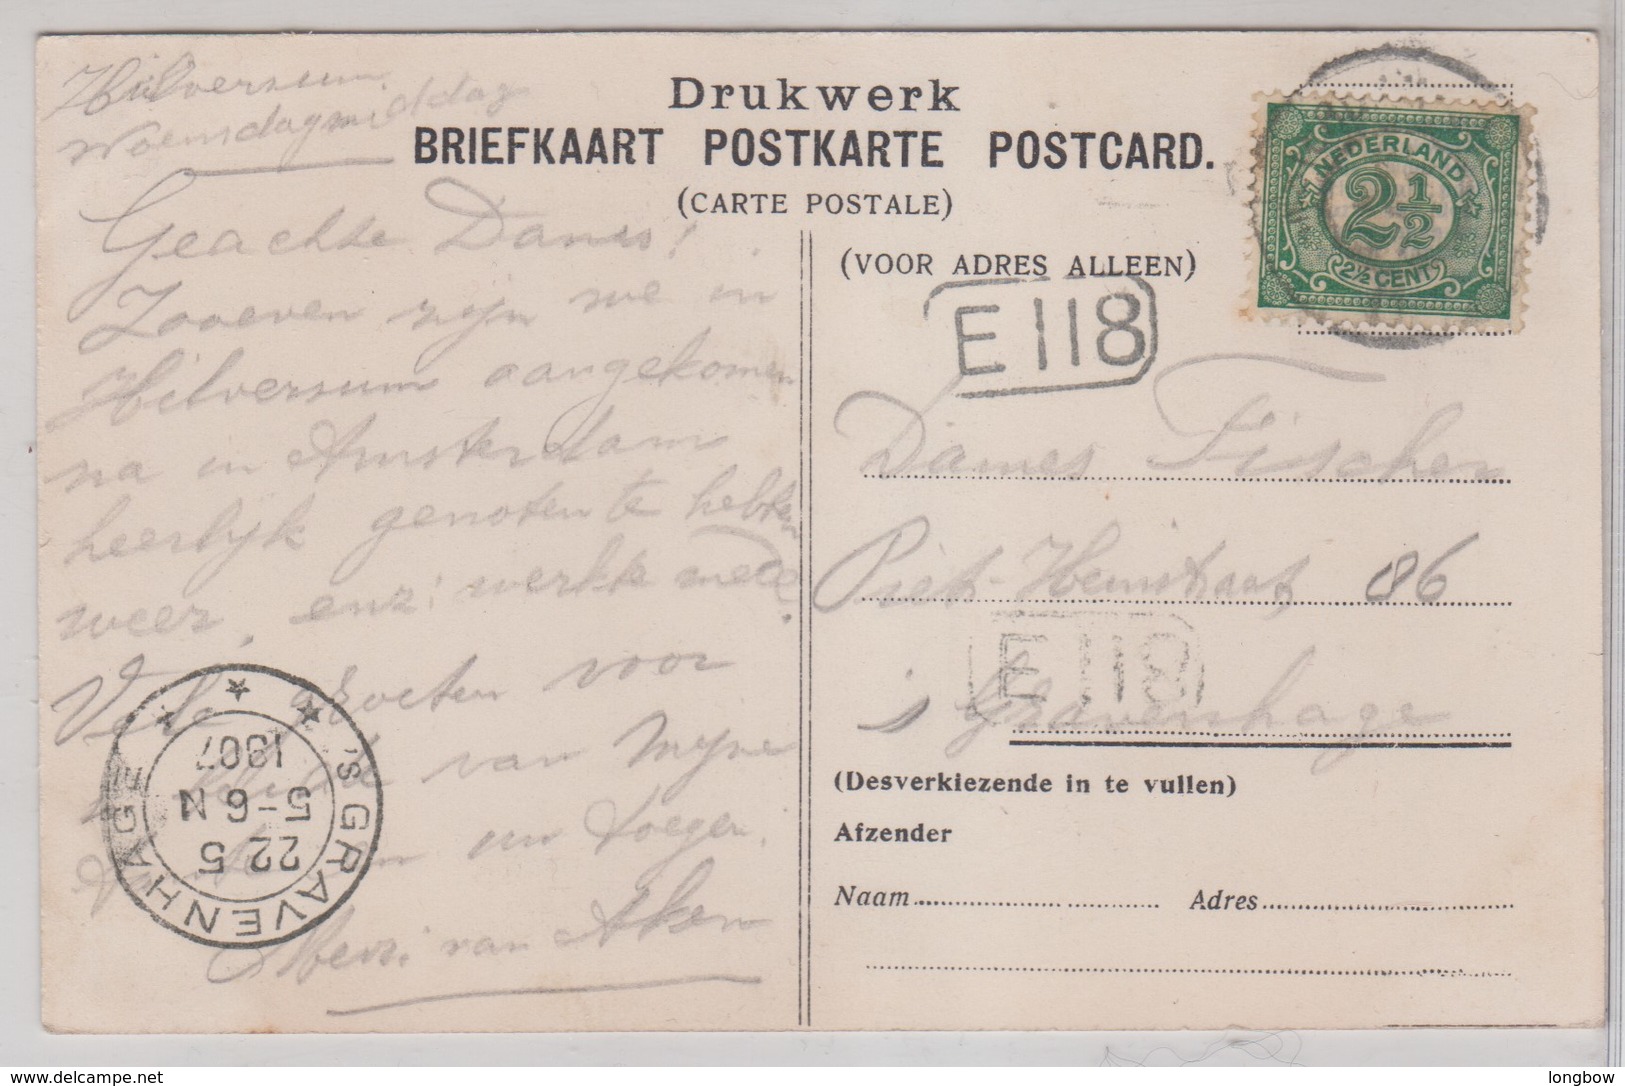 Hilversum
Woensdagmiddag
Drukwerk
BRIEFKAART POSTKARTE POSTCARD.
(CARTE POSTALE)
(VOOR ADRES ALLEEN)
NEDERLAND
2½
2½ CENT
E 118
Geachte Dames!
Zooeven zijn we in
Hilversum aangekomen
na in Amsterdam
heerlijk genoten te hebben
weer, enz. werkte mede.
Vele groeten voor
van mijne
en
van Aken
Dames Fischer
Piet-Heinstraat 86
E 118
s Gravenhage
's GRAVENHAGE
22 5
5-6 N
1907
(Desverkiezende in te vullen)
Afzender
Naam
Adres
www.delcampe.net
longbow